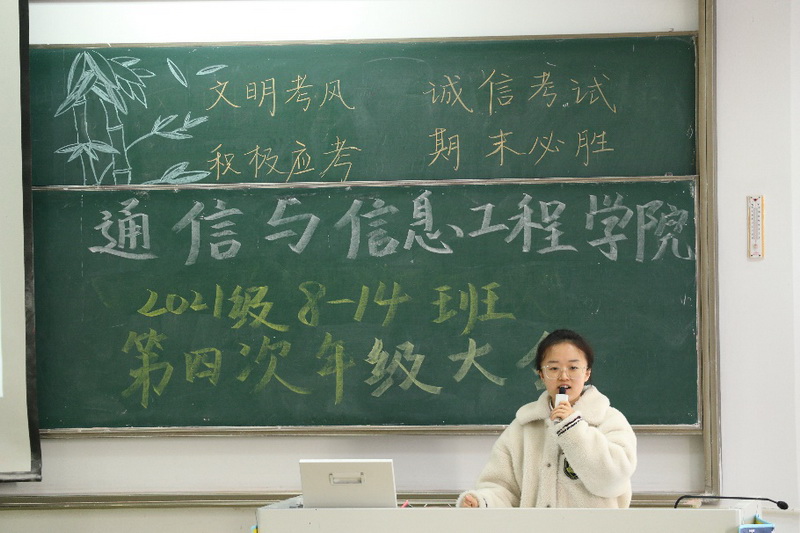 文明考风 诚信考试
积极应考 期末必胜
通信与信息工程学院
2021级8-14班
第四次年级大会